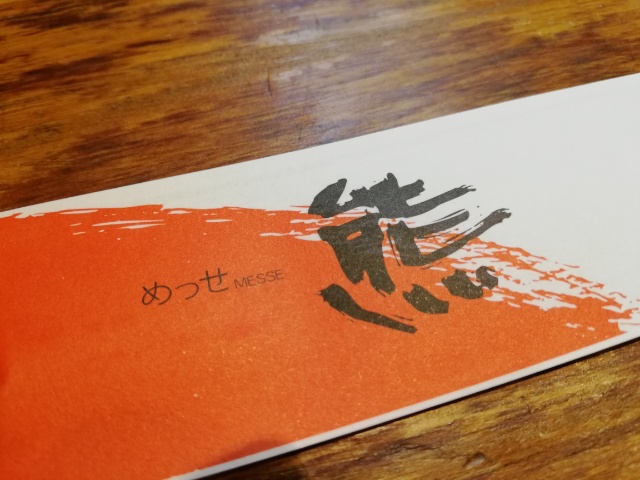 めっせ MESSE 熊